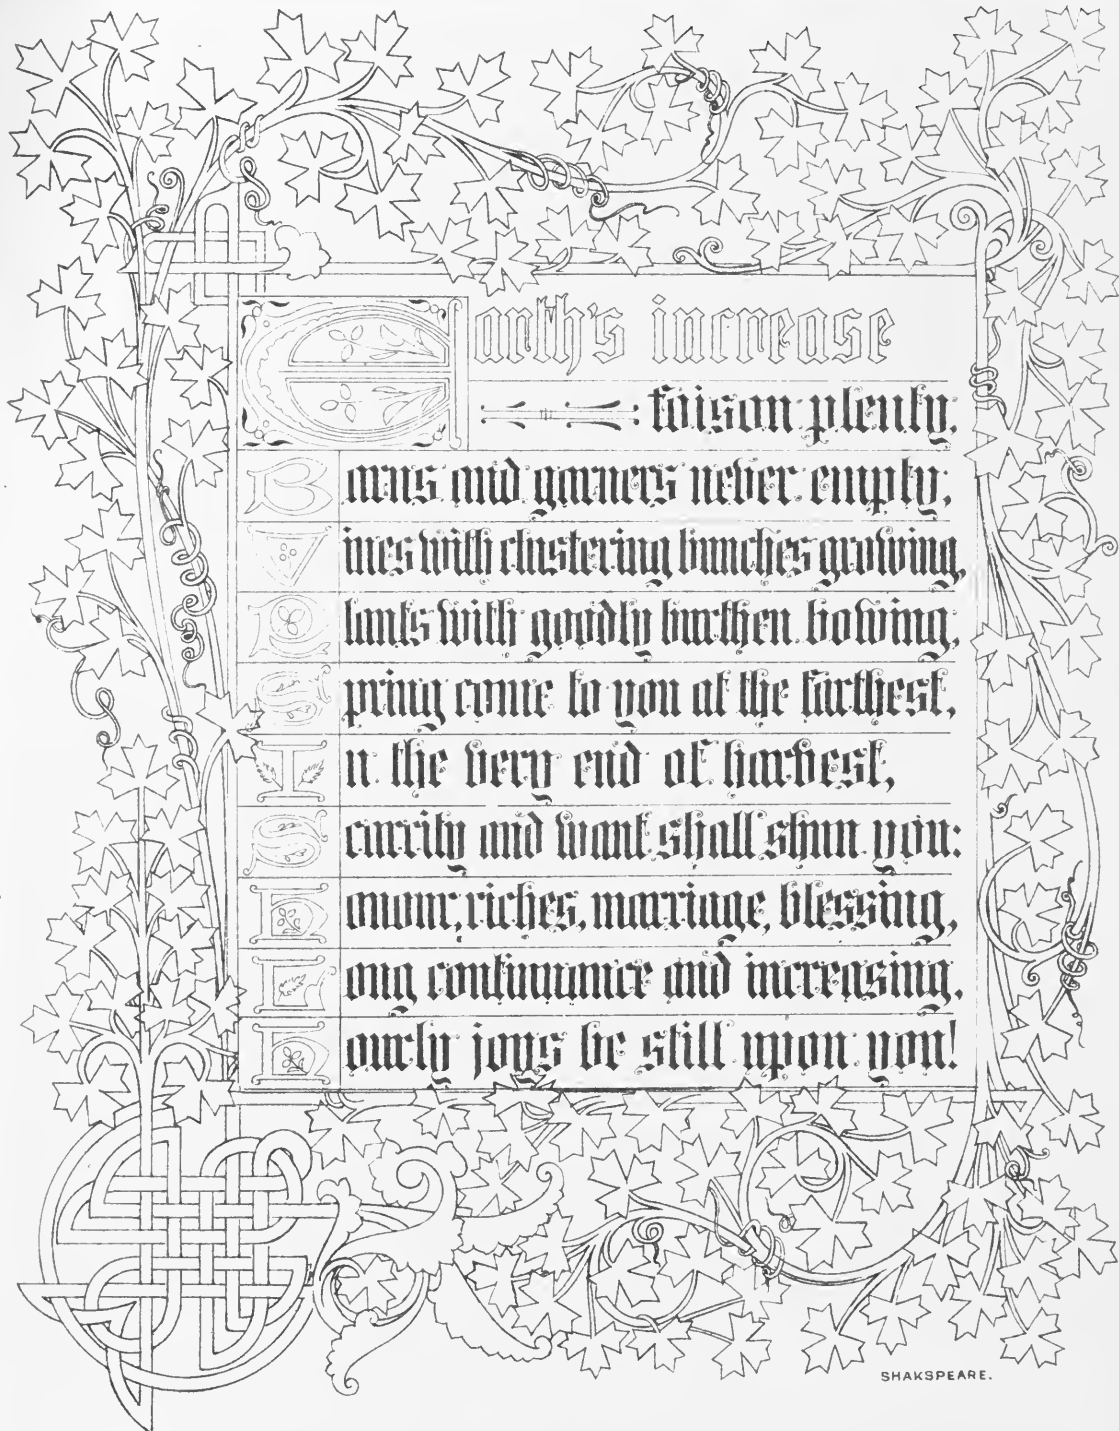 Earth's increase
foison plenty,
Barns and garners never empty;
Vines with clustering bunches growing,
Plants with goodly burthen bowing;
Spring come to you at the farthest,
In the very end of harvest,
Scarcity and want shall shun you:
Honour, riches, marriage, blessing,
Long continuance and increasing,
Hourly joys be still upon you!
SHAKSPEARE.